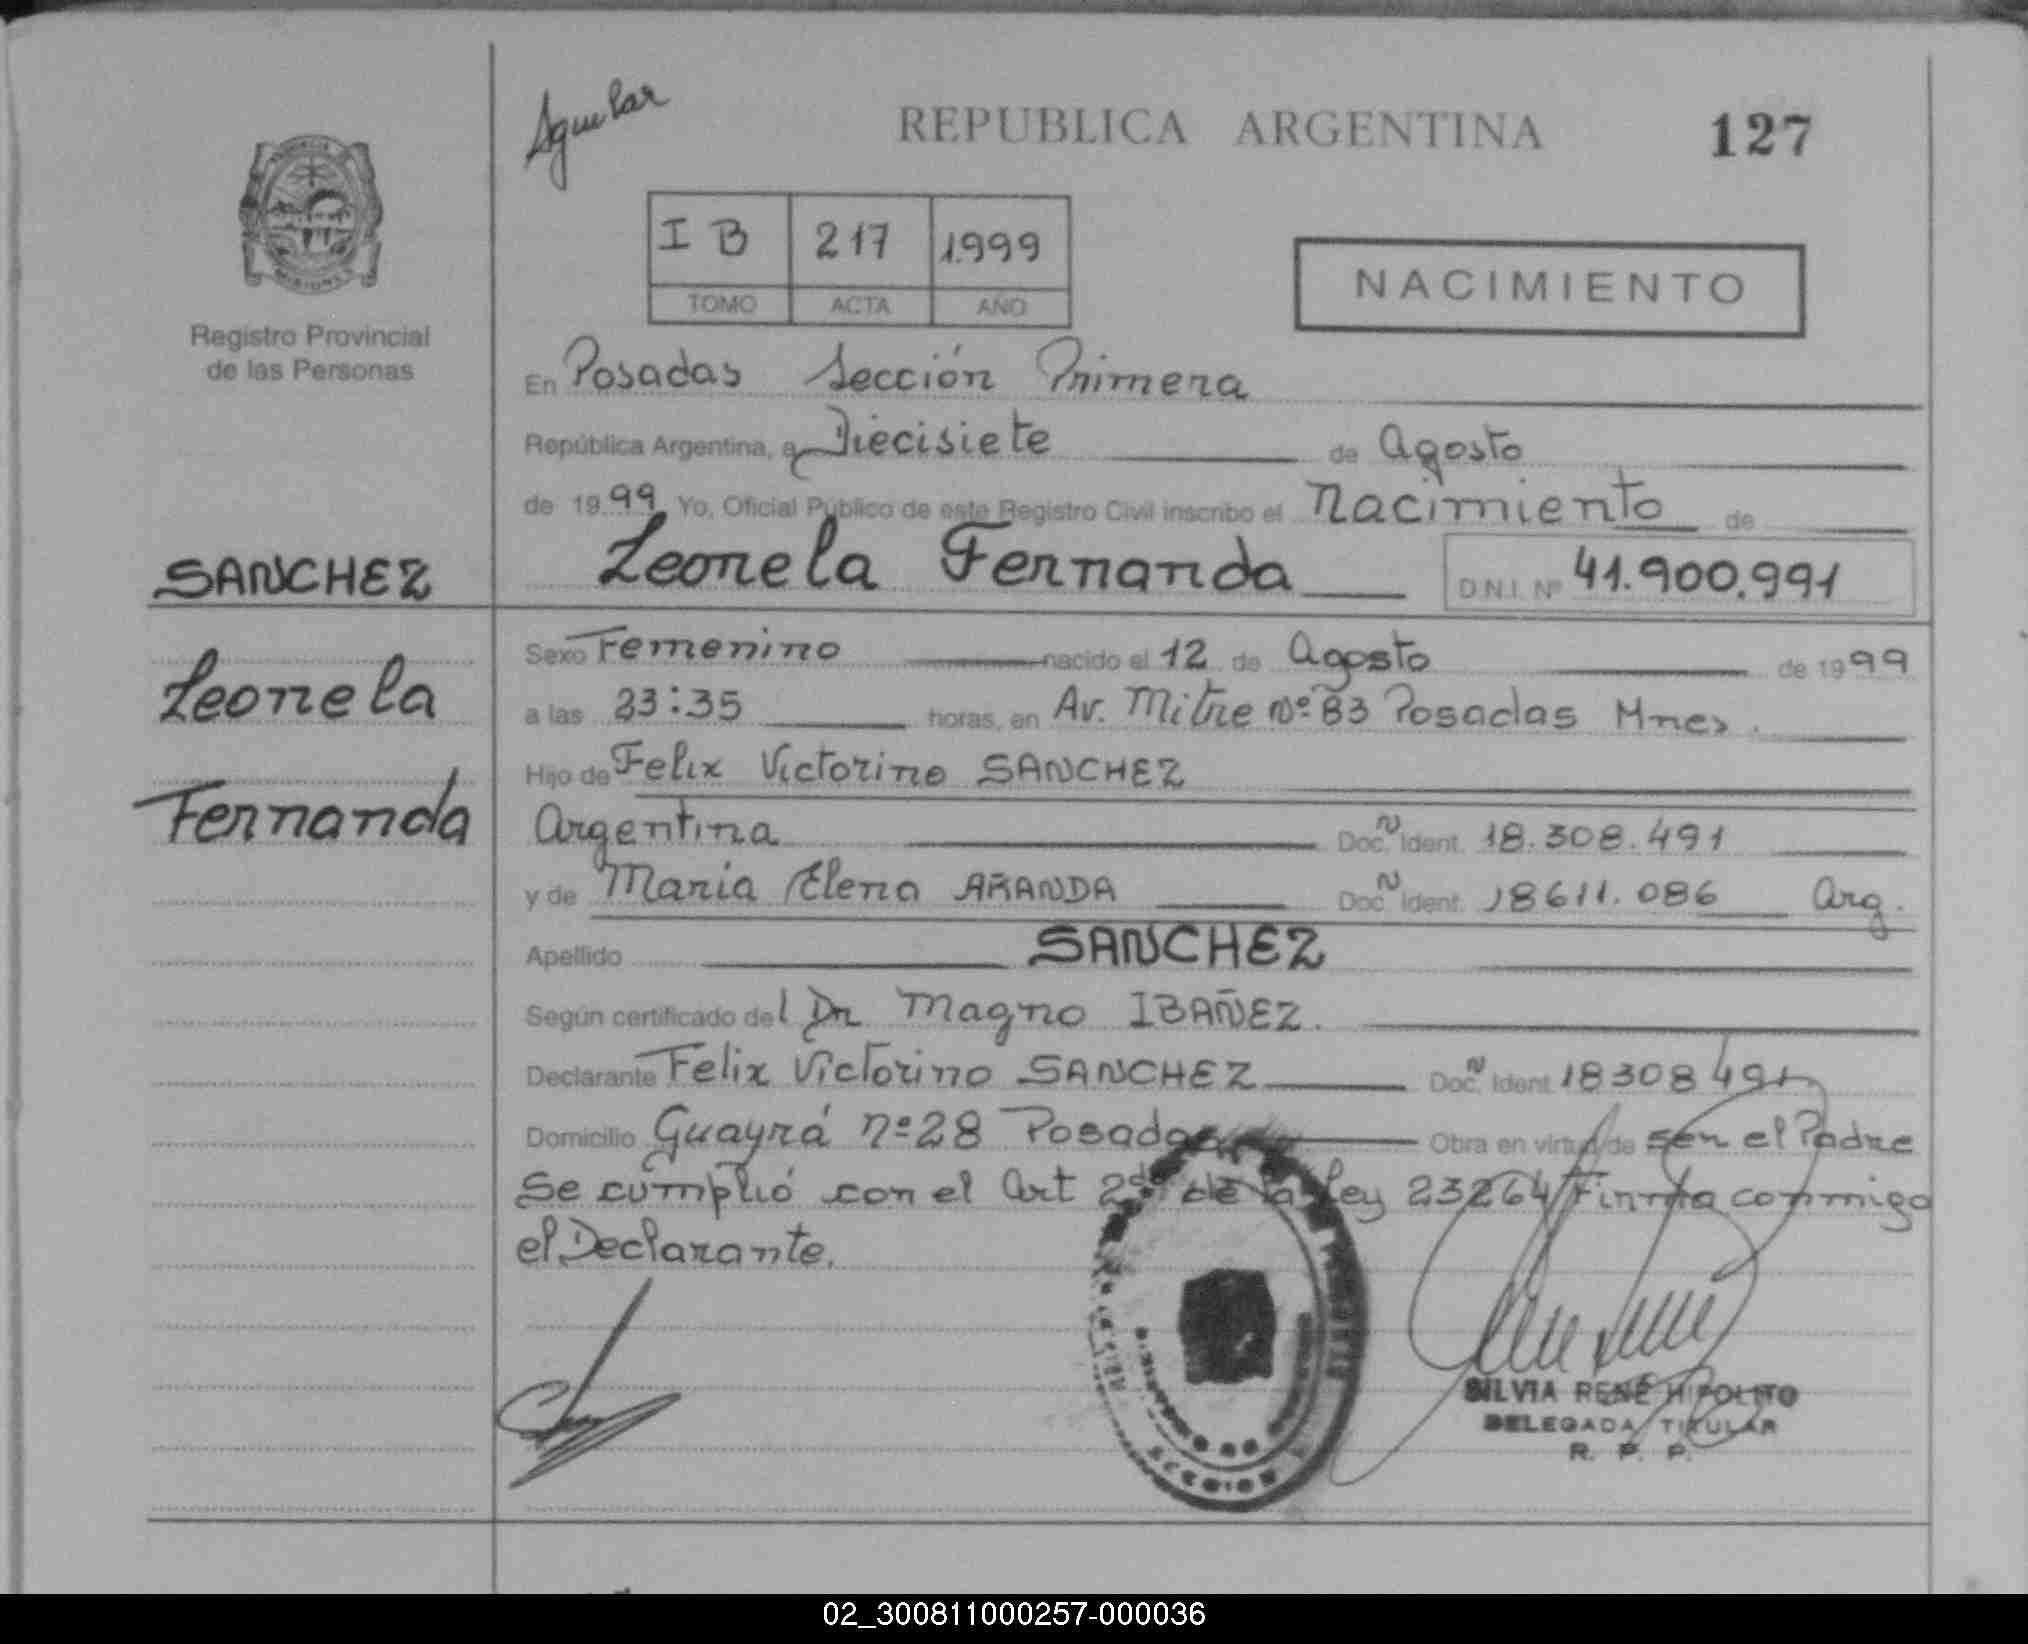 Aguilar
REPUBLICA ARGENTINA
127
I B 217 1.999
TOMO ACTA AÑO
NACIMIENTO
MISIONES
Registro Provincial
de las Personas
En Posadas Sección Primera
República Argentina, a Diecisiete de Agosto
de 1999 Yo, Oficial Público de este Registro Civil inscribo el Nacimiento de
Leonela Fernanda D.N.I. Nº 41.900.991
SANCHEZ
Leonela
Fernanda
Sexo Femenino nacido el 12 de Agosto de 1999
a las 23:35 horas, en Av. Mitre Nº 83 Posadas Mnes.
Hijo de Felix Victorino SANCHEZ
Argentina Doc. Ident. 18.308.491
y de Maria Elena ARANDA Doc. Ident. 18611.086 Arg.
Apellido SANCHEZ
Según certificado del Dr Magno IBAÑEZ.
Declarante Felix Victorino SANCHEZ Doc. Ident. 18308491
Domicilio Guayrá nº 28 Posadas Obra en virtud de ser el Padre
Se cumplió con el Art 2do de la Ley 23264 Firma conmigo
el Declarante.
SECCION
SILVIA RENÉ HIPOLITO
DELEGADA TITULAR
R. P. P.
02_300811000257-000036